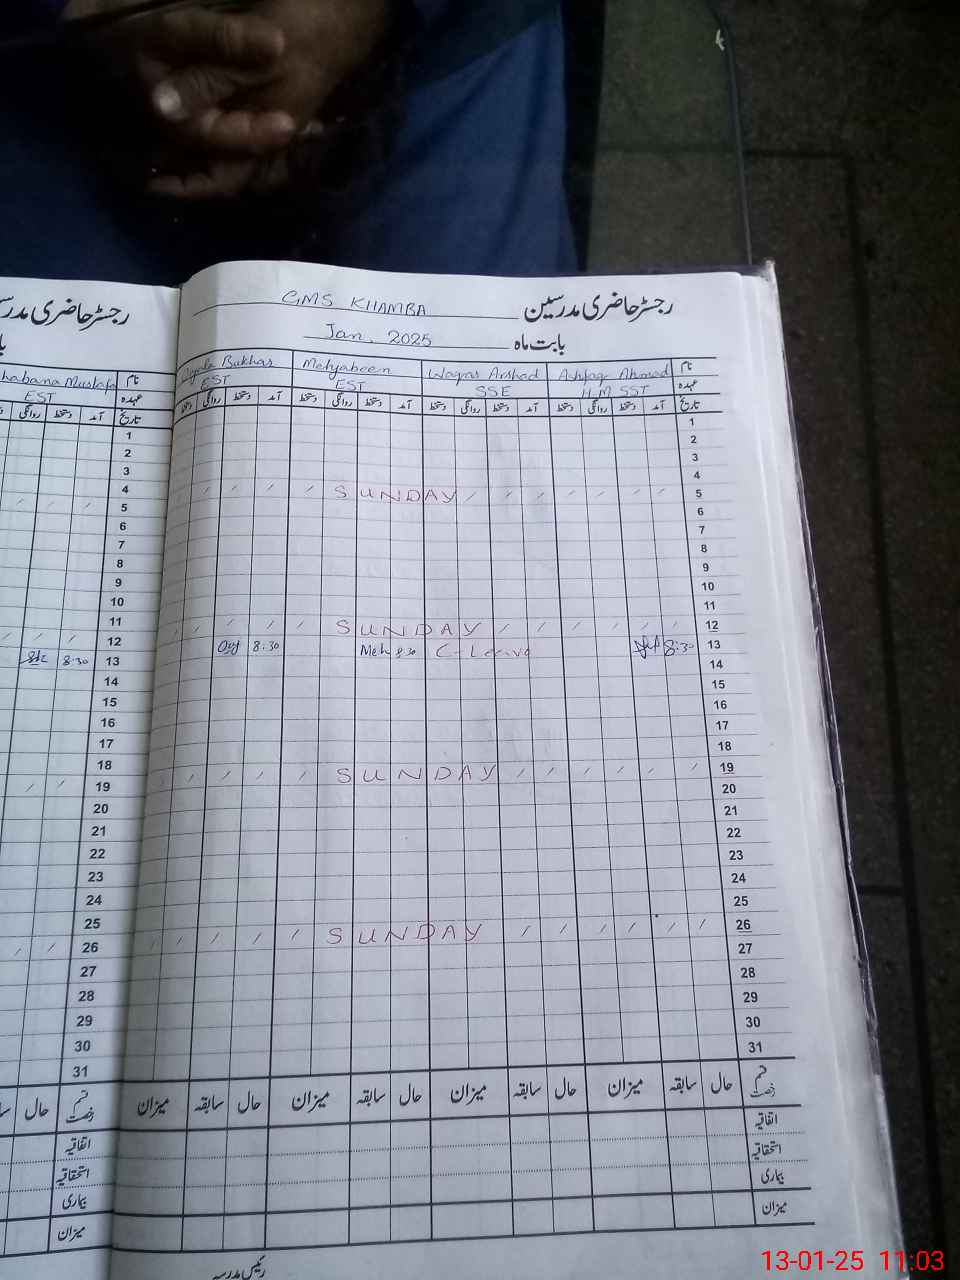 رجسٹر حاضری مدرسین GMS KHAMBA
بابت ماہ Jan. 2025
نام Ashfaq Ahmad Waqas Arshad Mehjabeen Bukhar
عہدہ H.M SST SSE EST EST
تاریخ آمد دستخط روانگی دستخط آمد دستخط روانگی دستخط آمد دستخط روانگی دستخط آمد دستخط روانگی دستخط
1
2
3
4
5 SUNDAY
6
7
8
9
10
11
12 SUNDAY
13 8:30 C-Leave 8:30 Meh 8:30
14
15
16
17
18
19 SUNDAY
20
21
22
23
24
25
26 SUNDAY
27
28
29
30
31
قسم رخصت حال سابقہ میزان حال سابقہ میزان حال سابقہ میزان حال سابقہ میزان
اتفاقیہ
استحقاقیہ
بیماری
میزان
رئیس مدرسہ
رجسٹر حاضری مدرسین
نام Shabana Mustafa
عہدہ EST
تاریخ آمد دستخط روانگی
1
2
3
4
5
6
7
8
9
10
11
12
13 8:30
14
15
16
17
18
19
20
21
22
23
24
25
26
27
28
29
30
31
قسم رخصت حال
اتفاقیہ
استحقاقیہ
بیماری
میزان
13-01-25 11:03